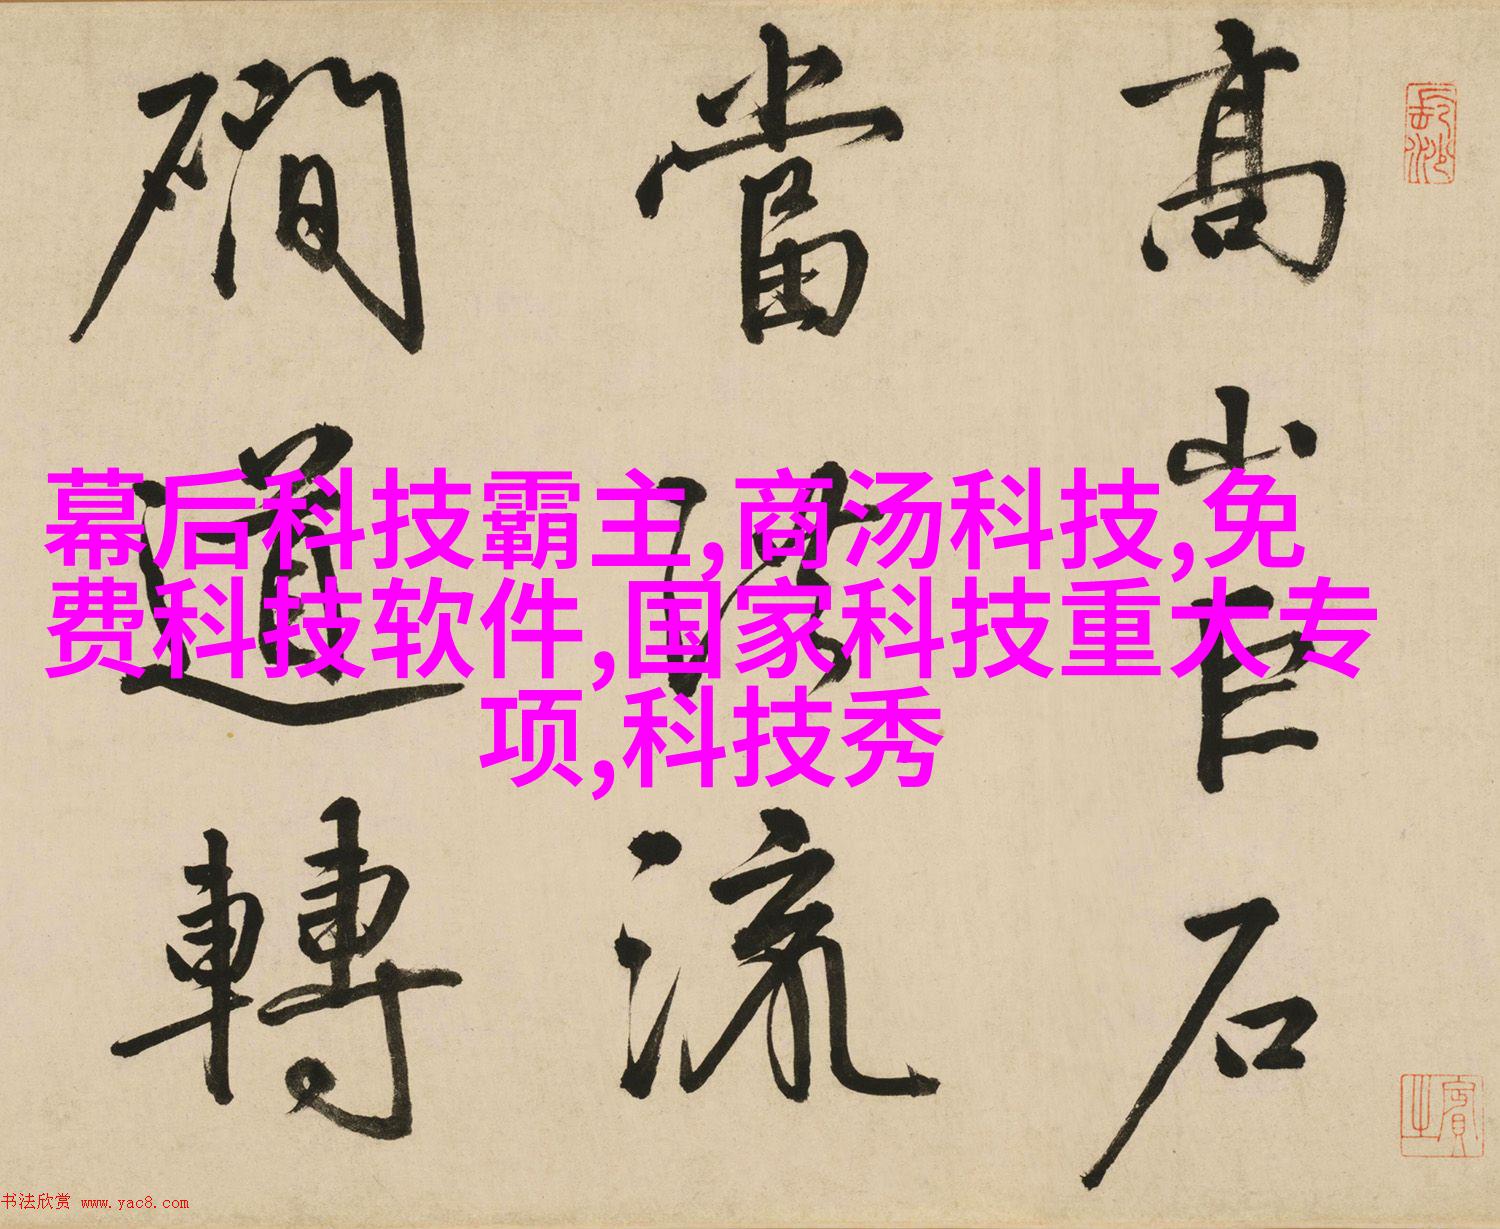 長沙
高山巨石
賓之
當
流
礀道轉
幕后科技霸主,商汤科技,免
费科技软件,国家科技重大专
项,科技秀
书法欣赏 www.yac8.com